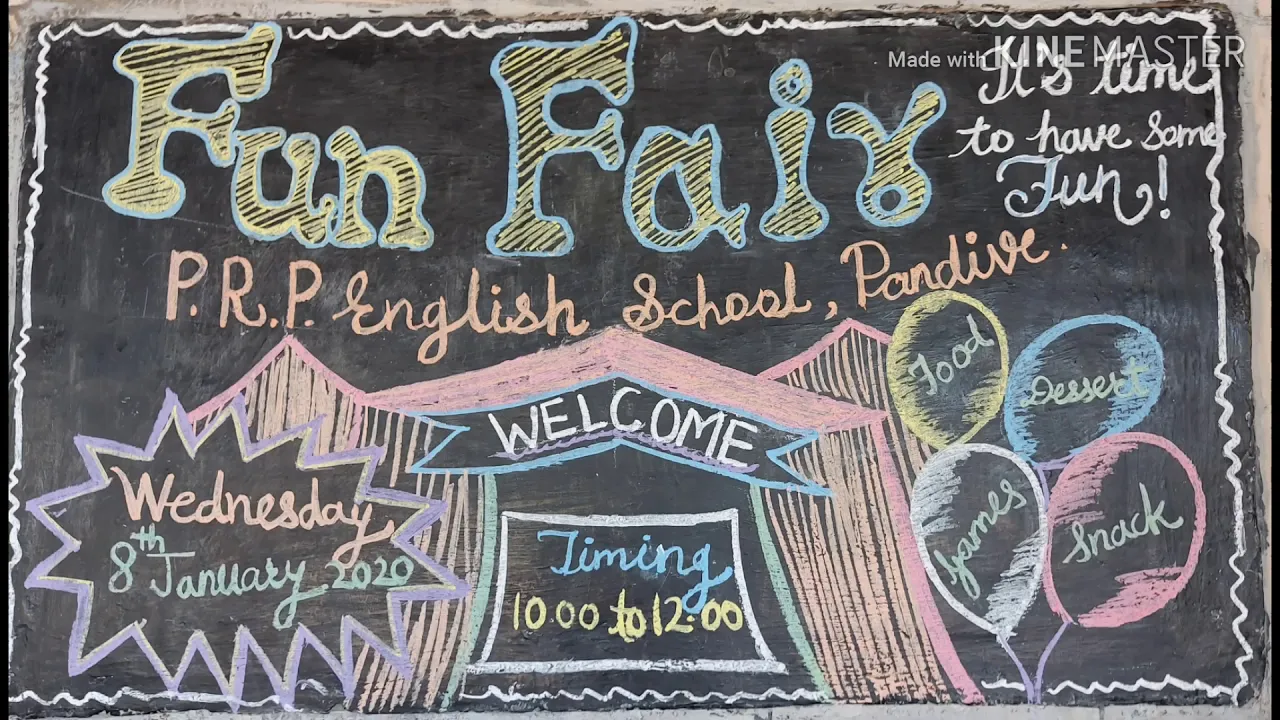 Made with KINEMASTER
Fun Fair
It's time
to have some
Fun!
P.R.P. English School, Pandive.
WELCOME
Food
Dessert
Games
Snack
Wednesday,
8th January 2020
Timing
10.00 to 12.00